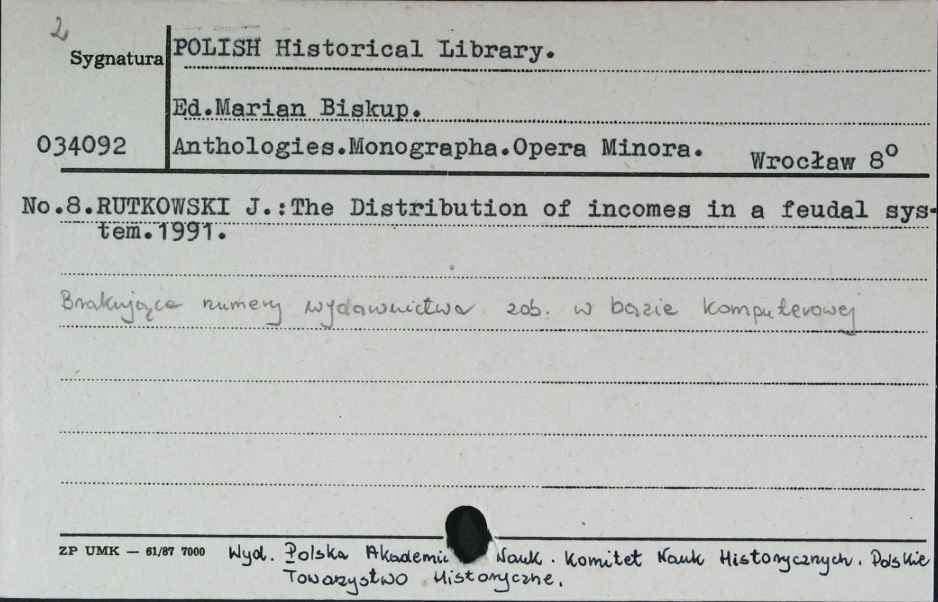 2
Sygnatura
POLISH Historical Library.
Ed.Marian Biskup.
034092
Anthologies.Monographa.Opera Minora.
Wrocław 8°
No.8.RUTKOWSKI J.:The Distribution of incomes in a feudal sys-
tem.1991.
Brakujące numery wydawnictwa zob. w bazie komputerowej
ZP UMK — 61/87 7000
Wyd. Polska Akademi Nauk. Komitet Nauk Historycznych. Polskie
Towarzystwo Historyczne.